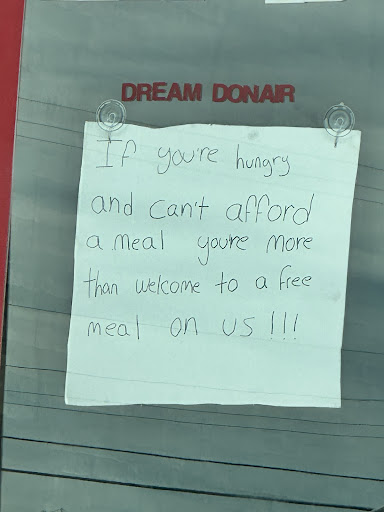 DREAM DONAIR
If you're hungry
and can't afford
a meal you're more
than welcome to a free
meal on us!!!